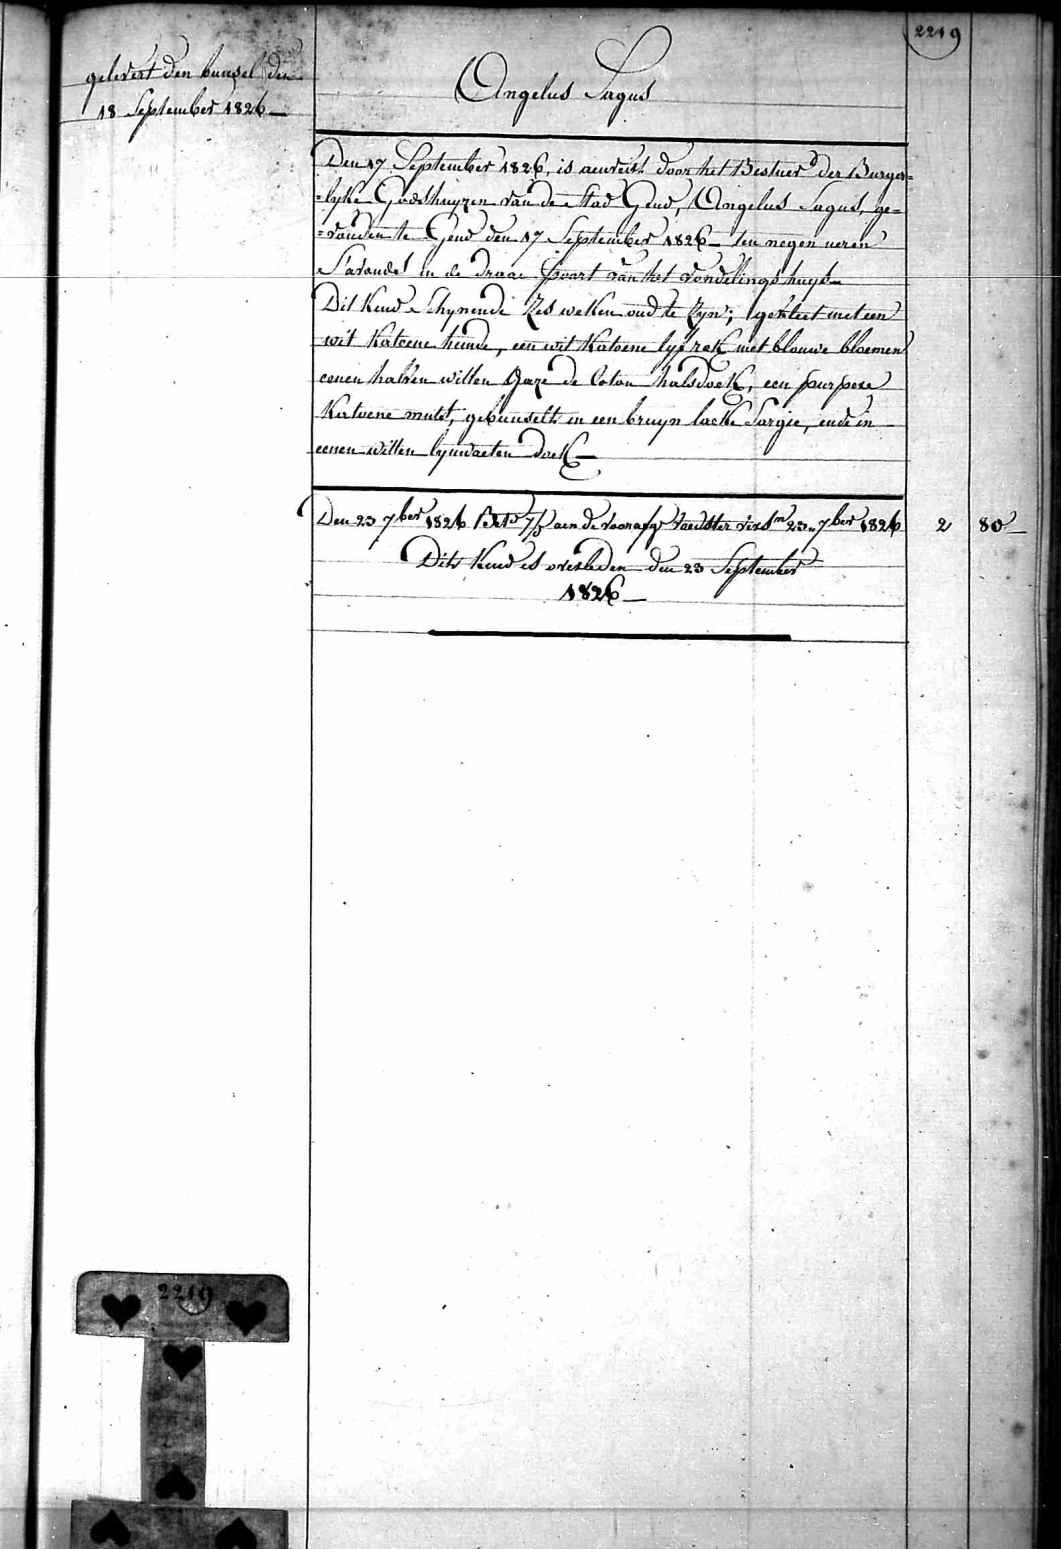 2219
gelevert den bunsel den
18 September 1826 —
Angelus Sagus
Den 17 September 1826, is aenveird door het Bestier der Burger=
=lyke Godshuyzen van de Stad Gend, Angelus Sagus, ge=
=vonden te Gend den 17 September 1826 — ten negen ueren
S'avonds in de draae poort van het vondelings huys —
Dit Kind schynende Zes weken oud te Zyn; gekleet met een
wit Katoene hemde, een wit Katoene lyfrok met blauwe bloemen
eenen halven witten Gaze de Coton halsdoek, een purpere
Katoene muts, gebunselt in een bruyn lacke Sargie, ende in
eenen witten lynwaeten doek —
Den 23 7ber 1826 aen de voorafg 23 7ber 1826 2 80 —
Dits Kind is overleden den 23 September
1826 —
2219